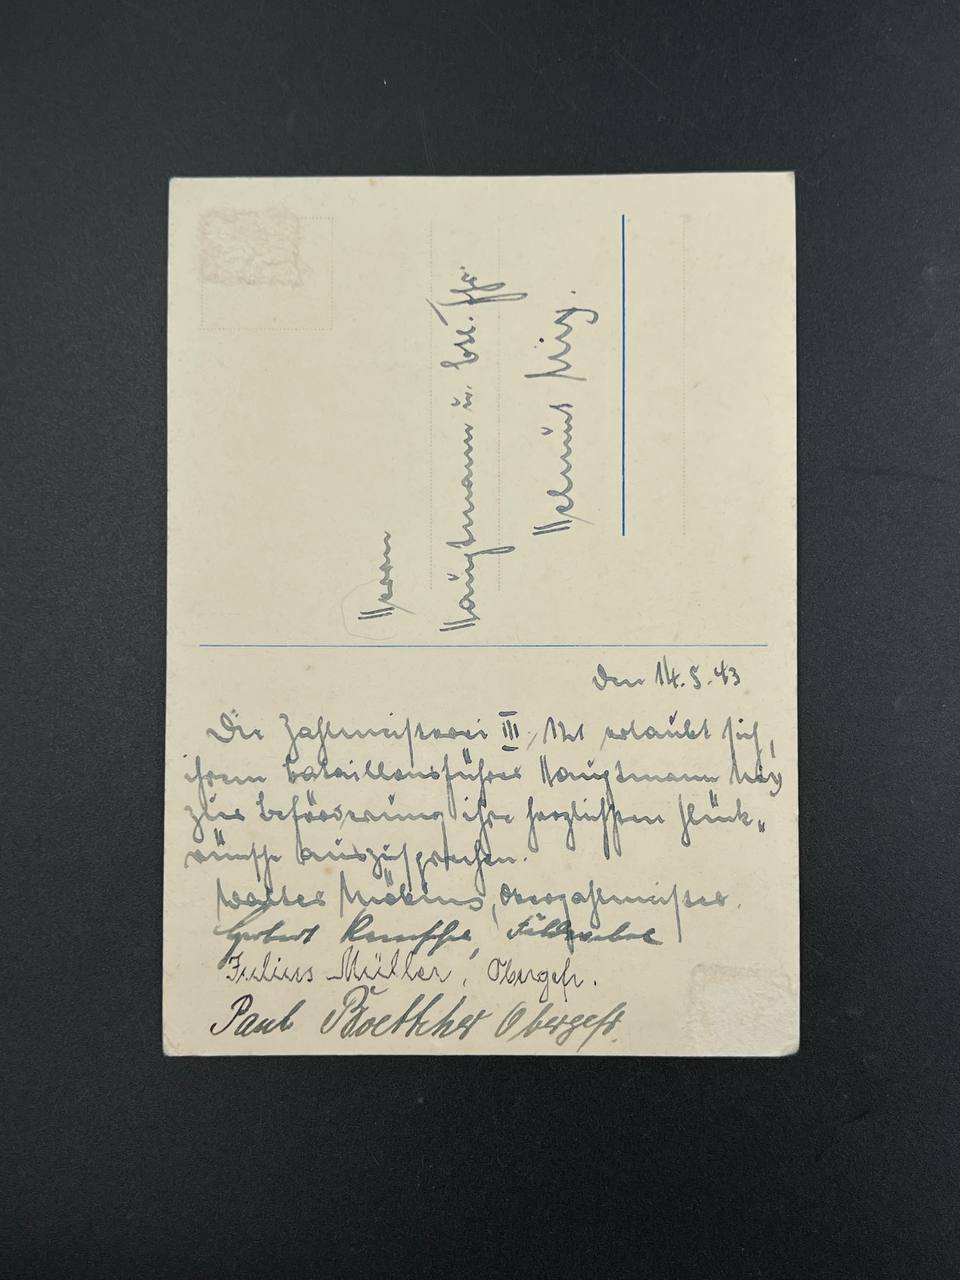 Herrn
Hauptmann u. Btl. Fhr.
Helmut
den 14.5.43
Die Zahlmeisterei III. erlaubt sich,
ihrem Bataillonsführer Hauptmann
zur Beförderung ihre herzlichsten Glück„
wünsche auszusprechen.
Walter Möbius, Oberzahlmeister.
Feldwebel
Julius Müller, Obergefr.
Paul Boettcher Obergefr.